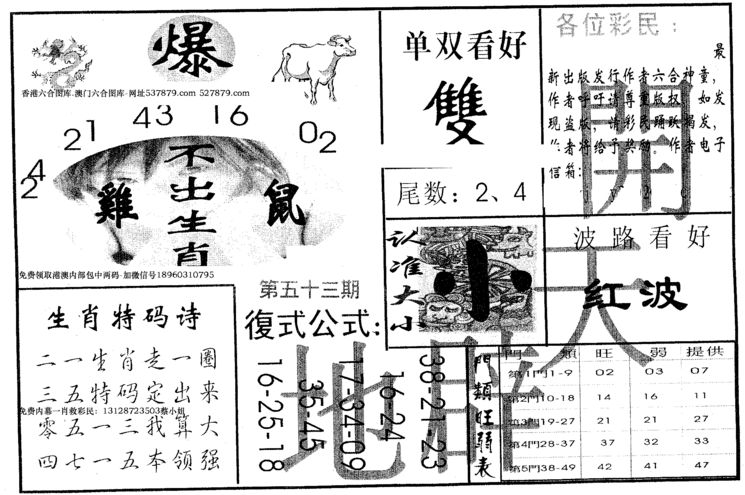 爆
香港六合图库-澳门六合图库-网址537879.com 527879.com
24 21 43 16 02
不出生肖
雞
鼠
免费领取港澳内部包中两码-加微信号18960310795
生肖特码诗
二一生肖走一圈
三五特码定出来
免费内幕一肖救彩民：13128723503蔡小姐
零五一三我算大
四七一五本领强
第五十三期
復式公式:
16-25-18
35-45
17-34-09
16-24
38-21-23
单双看好
雙
尾数：2、4
认准大小
小
各位彩民：
最
新出版发行作者六合神童，
作者呼吁请尊重版权，如发
现盗版，请彩民踊跃揭发，
者将给予奖励。作者电子
信箱：
波路看好
红波
開天地牌
門類旺弱表
門類 旺 弱 提供
第1門1-9 02 03 07
第2門10-18 14 16 11
第3門19-27 21 21 27
第4門28-37 37 32 33
第5門38-49 42 41 47